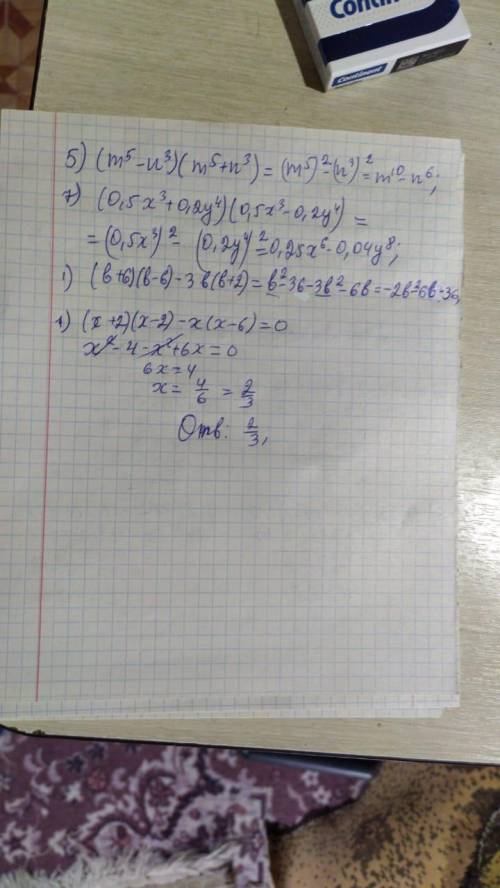 Contin
Continent
5) (m⁵-n³)(m⁵+n³) = (m⁵)²-(n³)² = m¹⁰-n⁶;
7) (0,5x³+0,2y⁴)(0,5x³-0,2y⁴) =
= (0,5x³)² - (0,2y⁴)² = 0,25x⁶-0,04y⁸;
1) (b+6)(b-6)-3b(b+2) = b²-36-3b²-6b = -2b²-6b-36,
1) (x+2)(x-2)-x(x-6)=0
x²-4-x²+6x=0
6x=4
x= 4/6 = 2/3
Отв: 2/3,